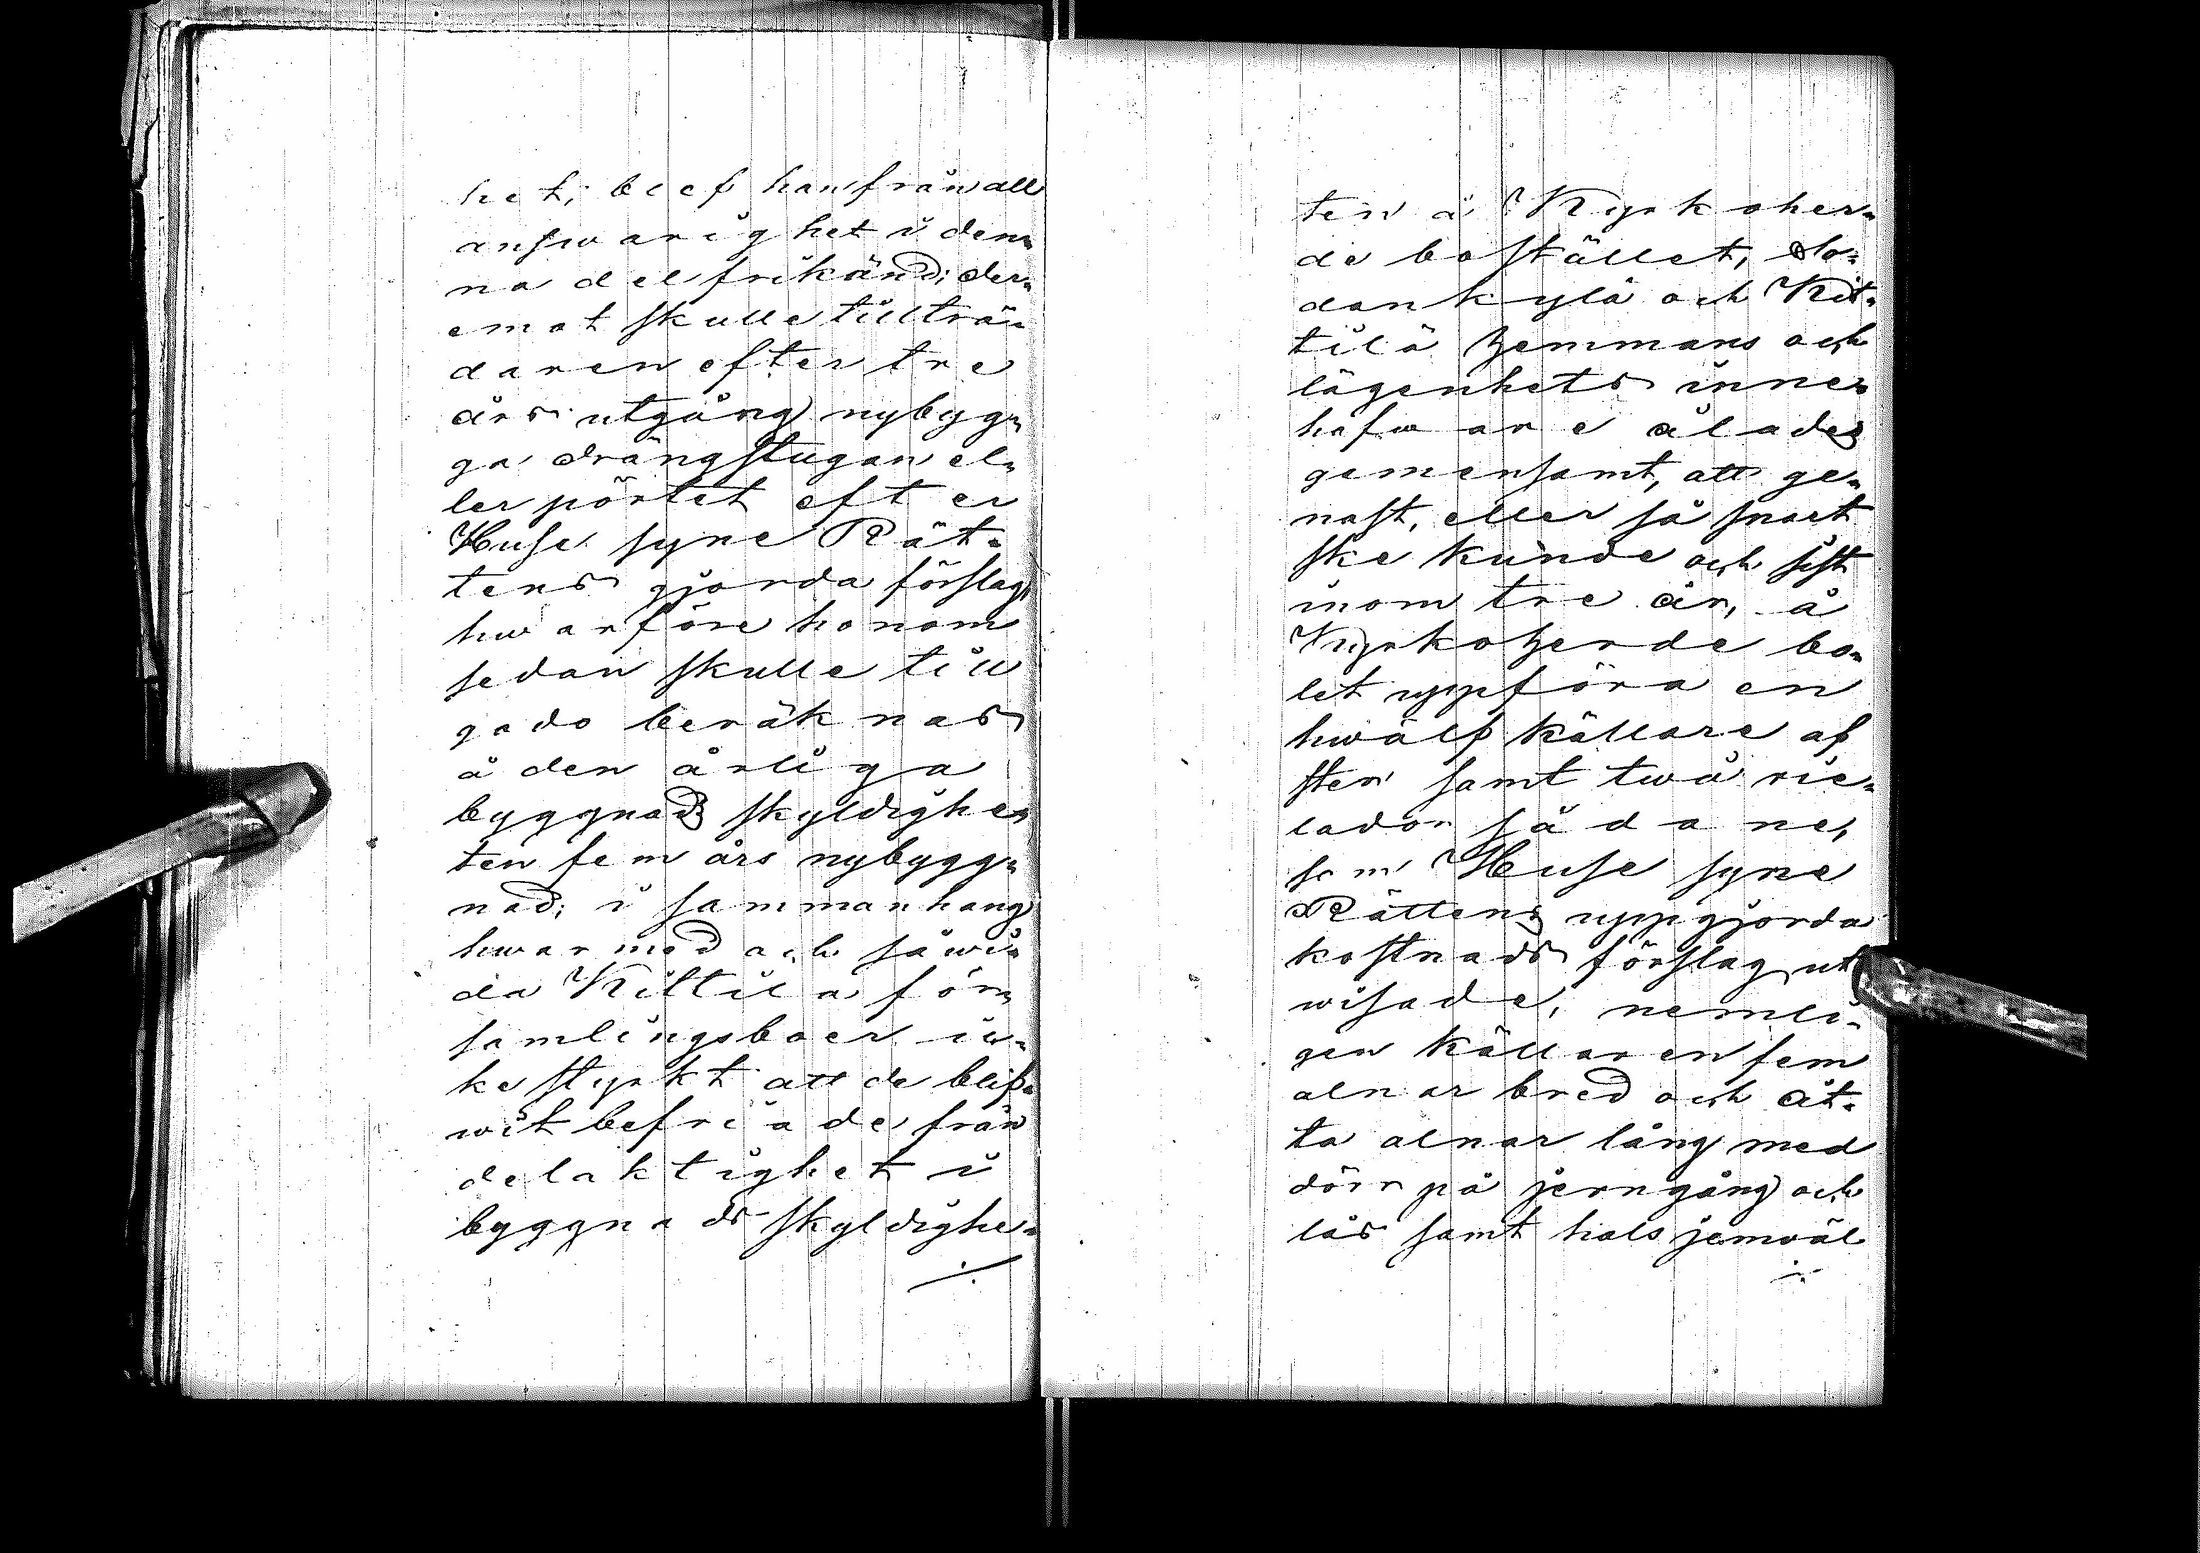 het; blef han från all
answarighet i den=
na del frikänd; der=
emot skulle tillträ=
daren efter tre
års utgång nybyg=
ga drängstugan el=
ler pörtet efter
Huse syne Rät=
tens gjorda förslag,
hwarföre honom
sedan skulle till
godo beräknas
å den årliga
byggnads skyldighe=
ten fem års nybygg=
nad; i sammanhang
hwarmed och såwi=
da Kittila för=
samlingsboer ic=
ke styrkt att de blif=
wit befriade från
delaktighet i
byggnads skyldighe=
./.
ten å Kyrkoher=
de bostället, So=
dankylä och Kit=
tilä hemmans och
lägenhets inne=
hafware ålades
gemensamt, att ge=
nast, eller så snart
ske kunde och sist
inom tre år, å
Kyrkoherde bo=
let uppföra en
hwälf källare af
sten samt twå rie=
lador sådane,
som Huse syne
Rättens uppgjorda
kostnads förslag ut
wisade, nemli=
gen källaren fem
alnar bred och åt=
ta alnar lång med
dörr på jerngång och
lås samt hals jemwäl
./.